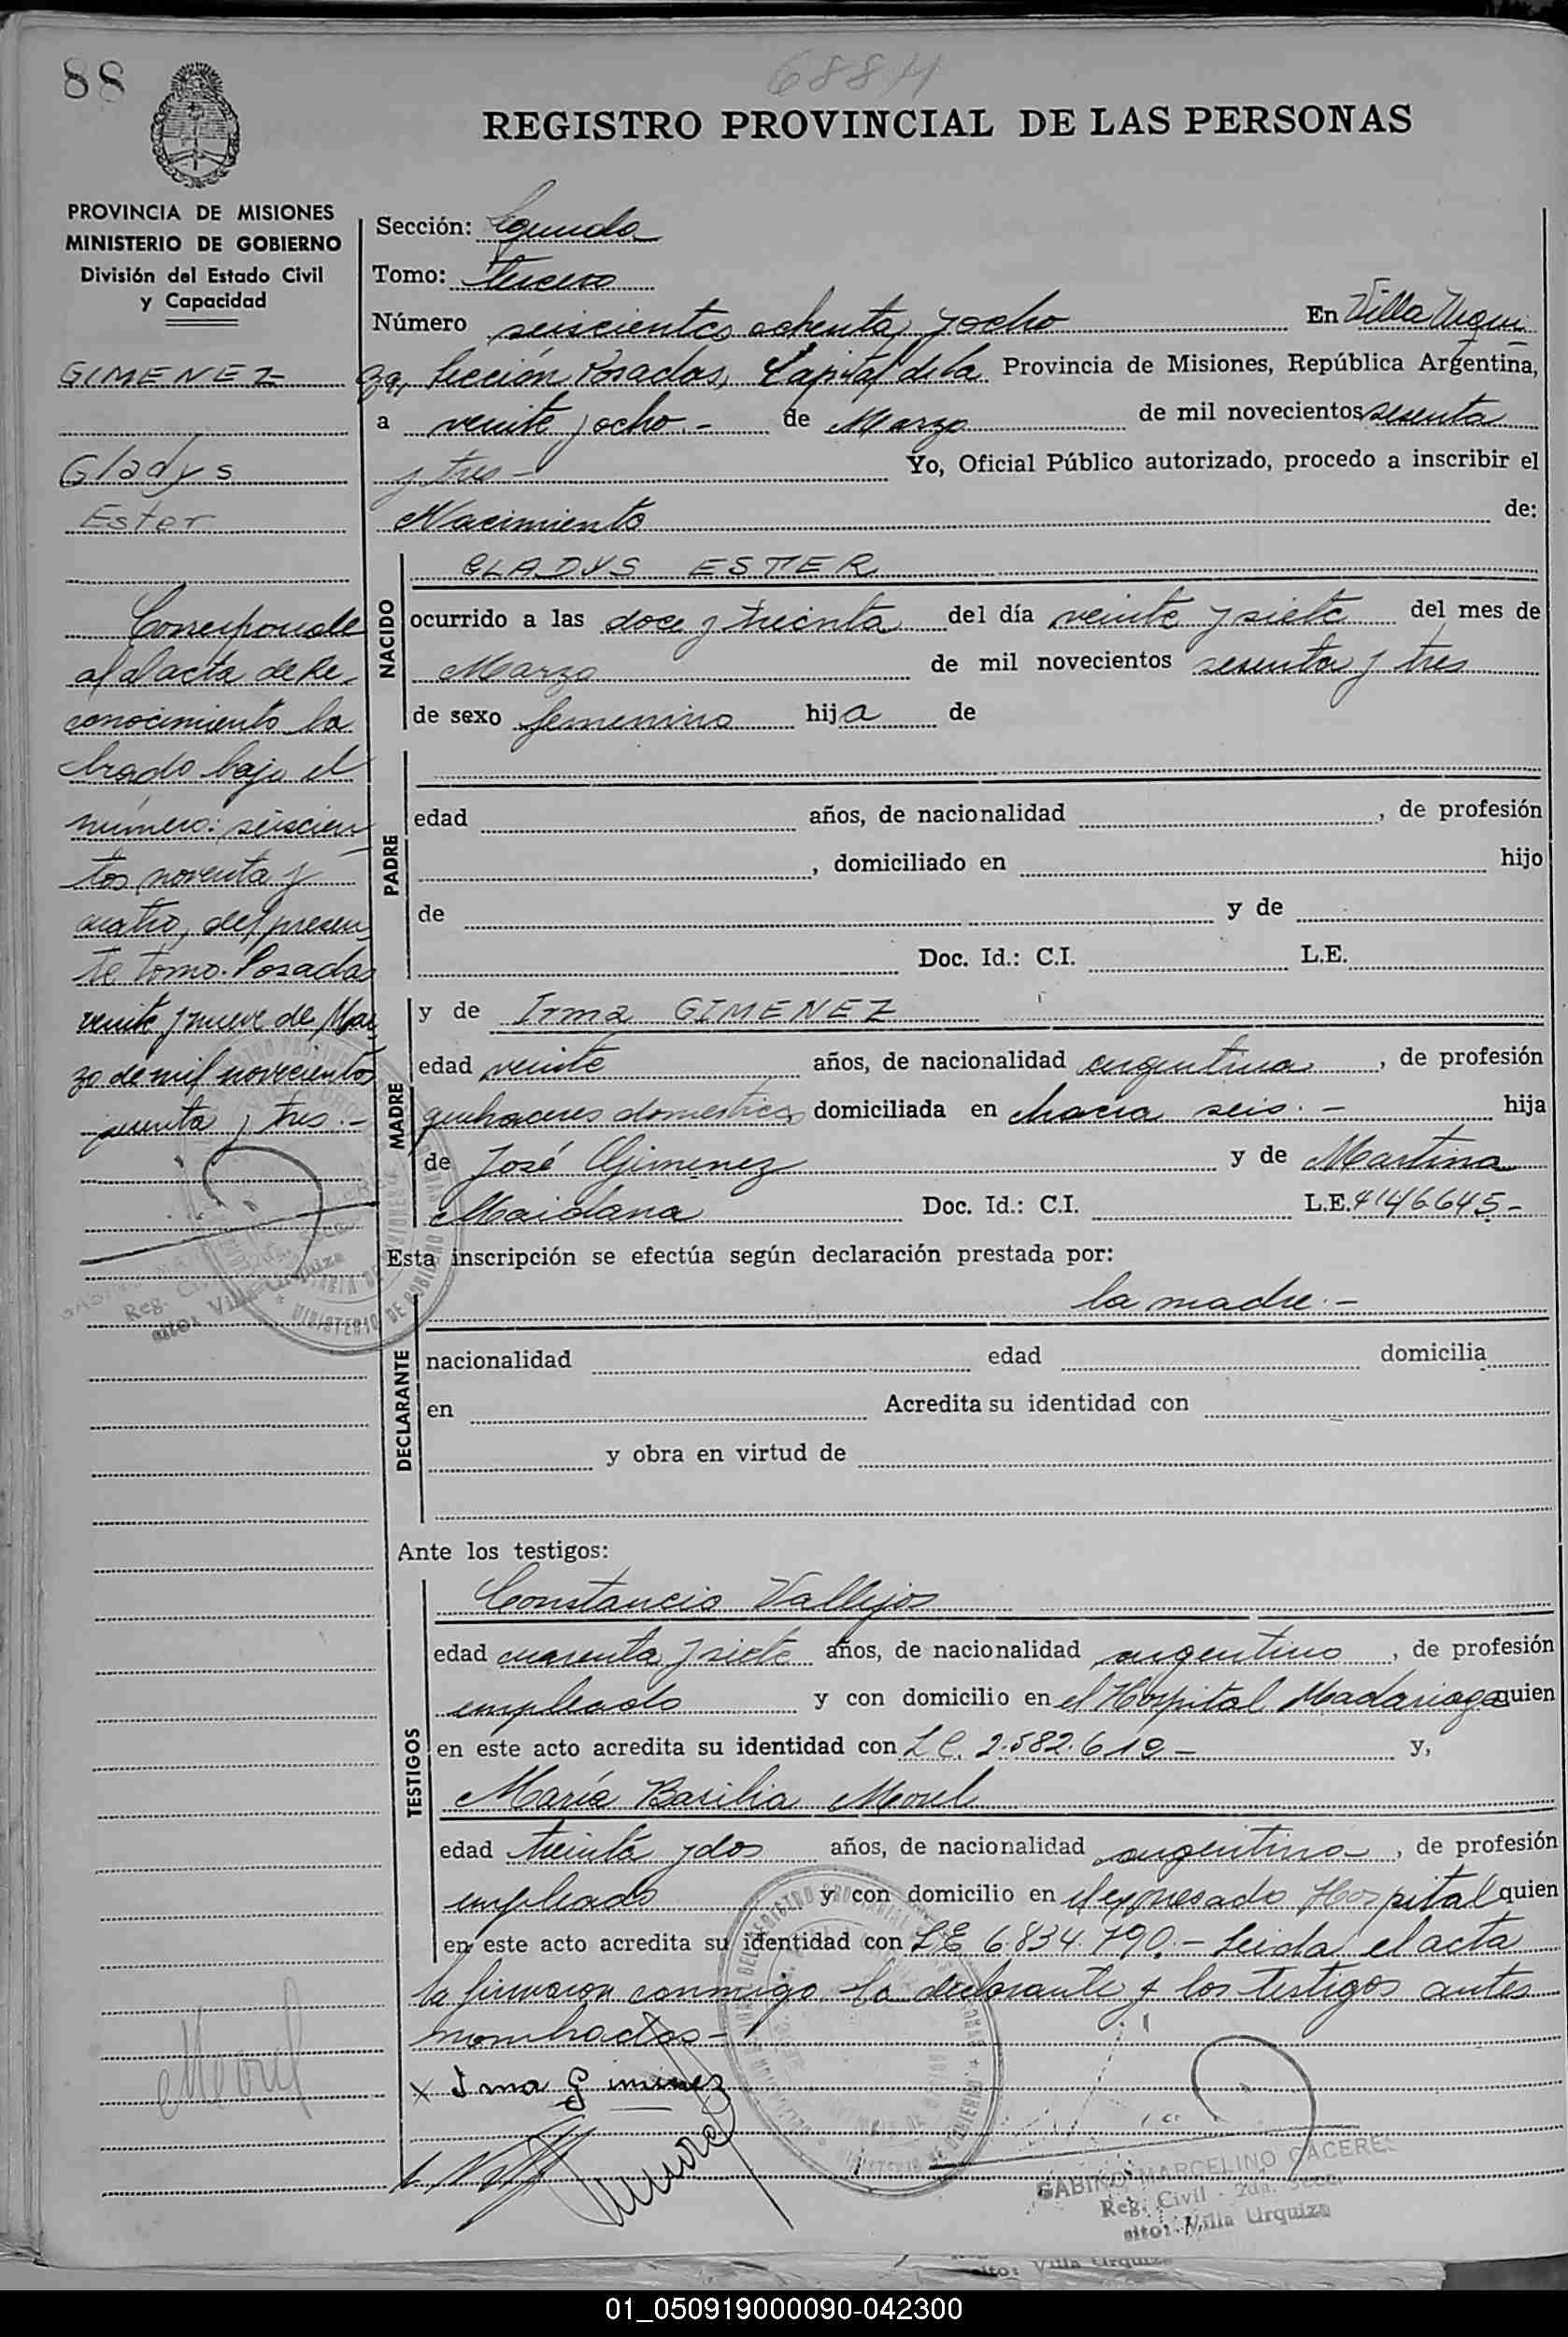 88
688 M
REGISTRO PROVINCIAL DE LAS PERSONAS
PROVINCIA DE MISIONES
MINISTERIO DE GOBIERNO
División del Estado Civil
y Capacidad
GIMENEZ
Gladys
Ester
Corresponde
al acta de Re-
conocimiento la
brado bajo el
número: seiscien
tos noventa y
cuatro, del presen
te tomo. Posadas
veinte y nueve de Mar
zo de mil novecientos
sesenta y tres.-
Sección: Segunda
Tomo: tercero
Número seiscientos ochenta y ocho En Villa Urqui
za, Sección Posadas, Capital de la Provincia de Misiones, República Argentina,
a veinte y ocho.- de Marzo de mil novecientos sesenta
y tres - Yo, Oficial Público autorizado, procedo a inscribir el
Nacimiento de:
NACIDO
GLADYS ESTER
ocurrido a las doce y treinta del día veinte y siete del mes de
Marzo de mil novecientos sesenta y tres
de sexo femenino hija de
PADRE
edad años, de nacionalidad , de profesión
, domiciliado en hijo
de y de
Doc. Id.: C.I. L.E.
MADRE
y de Irma GIMENEZ
edad veinte años, de nacionalidad argentina , de profesión
quehaceres domesticos domiciliada en chacra seis.- hija
de José Gimenez y de Martina
Maidana Doc. Id.: C.I. L.E. 4146645-
Esta inscripción se efectúa según declaración prestada por:
DECLARANTE
la madre.-
nacionalidad edad domicilia
en Acredita su identidad con
y obra en virtud de
Ante los testigos:
TESTIGOS
Constancio Vallejos
edad cuarenta y siete años, de nacionalidad argentino , de profesión
empleado y con domicilio en el Hospital Madariaga quien
en este acto acredita su identidad con L.E. 2.582.619- y,
María Basilia Morel
edad treinta y dos años, de nacionalidad argentina , de profesión
empleado y con domicilio en el expresado Hospital quien
en este acto acredita su identidad con L.E 6.834.790.- Leida el acta
la firmaron conmigo la declarante y los testigos antes
nombrados-
x Irma Giminez
Morel
GABINO MARCELINO CACERES
Reg. Civil - 2da. Secc.
sito: Villa Urquiza
01_050919000090-042300